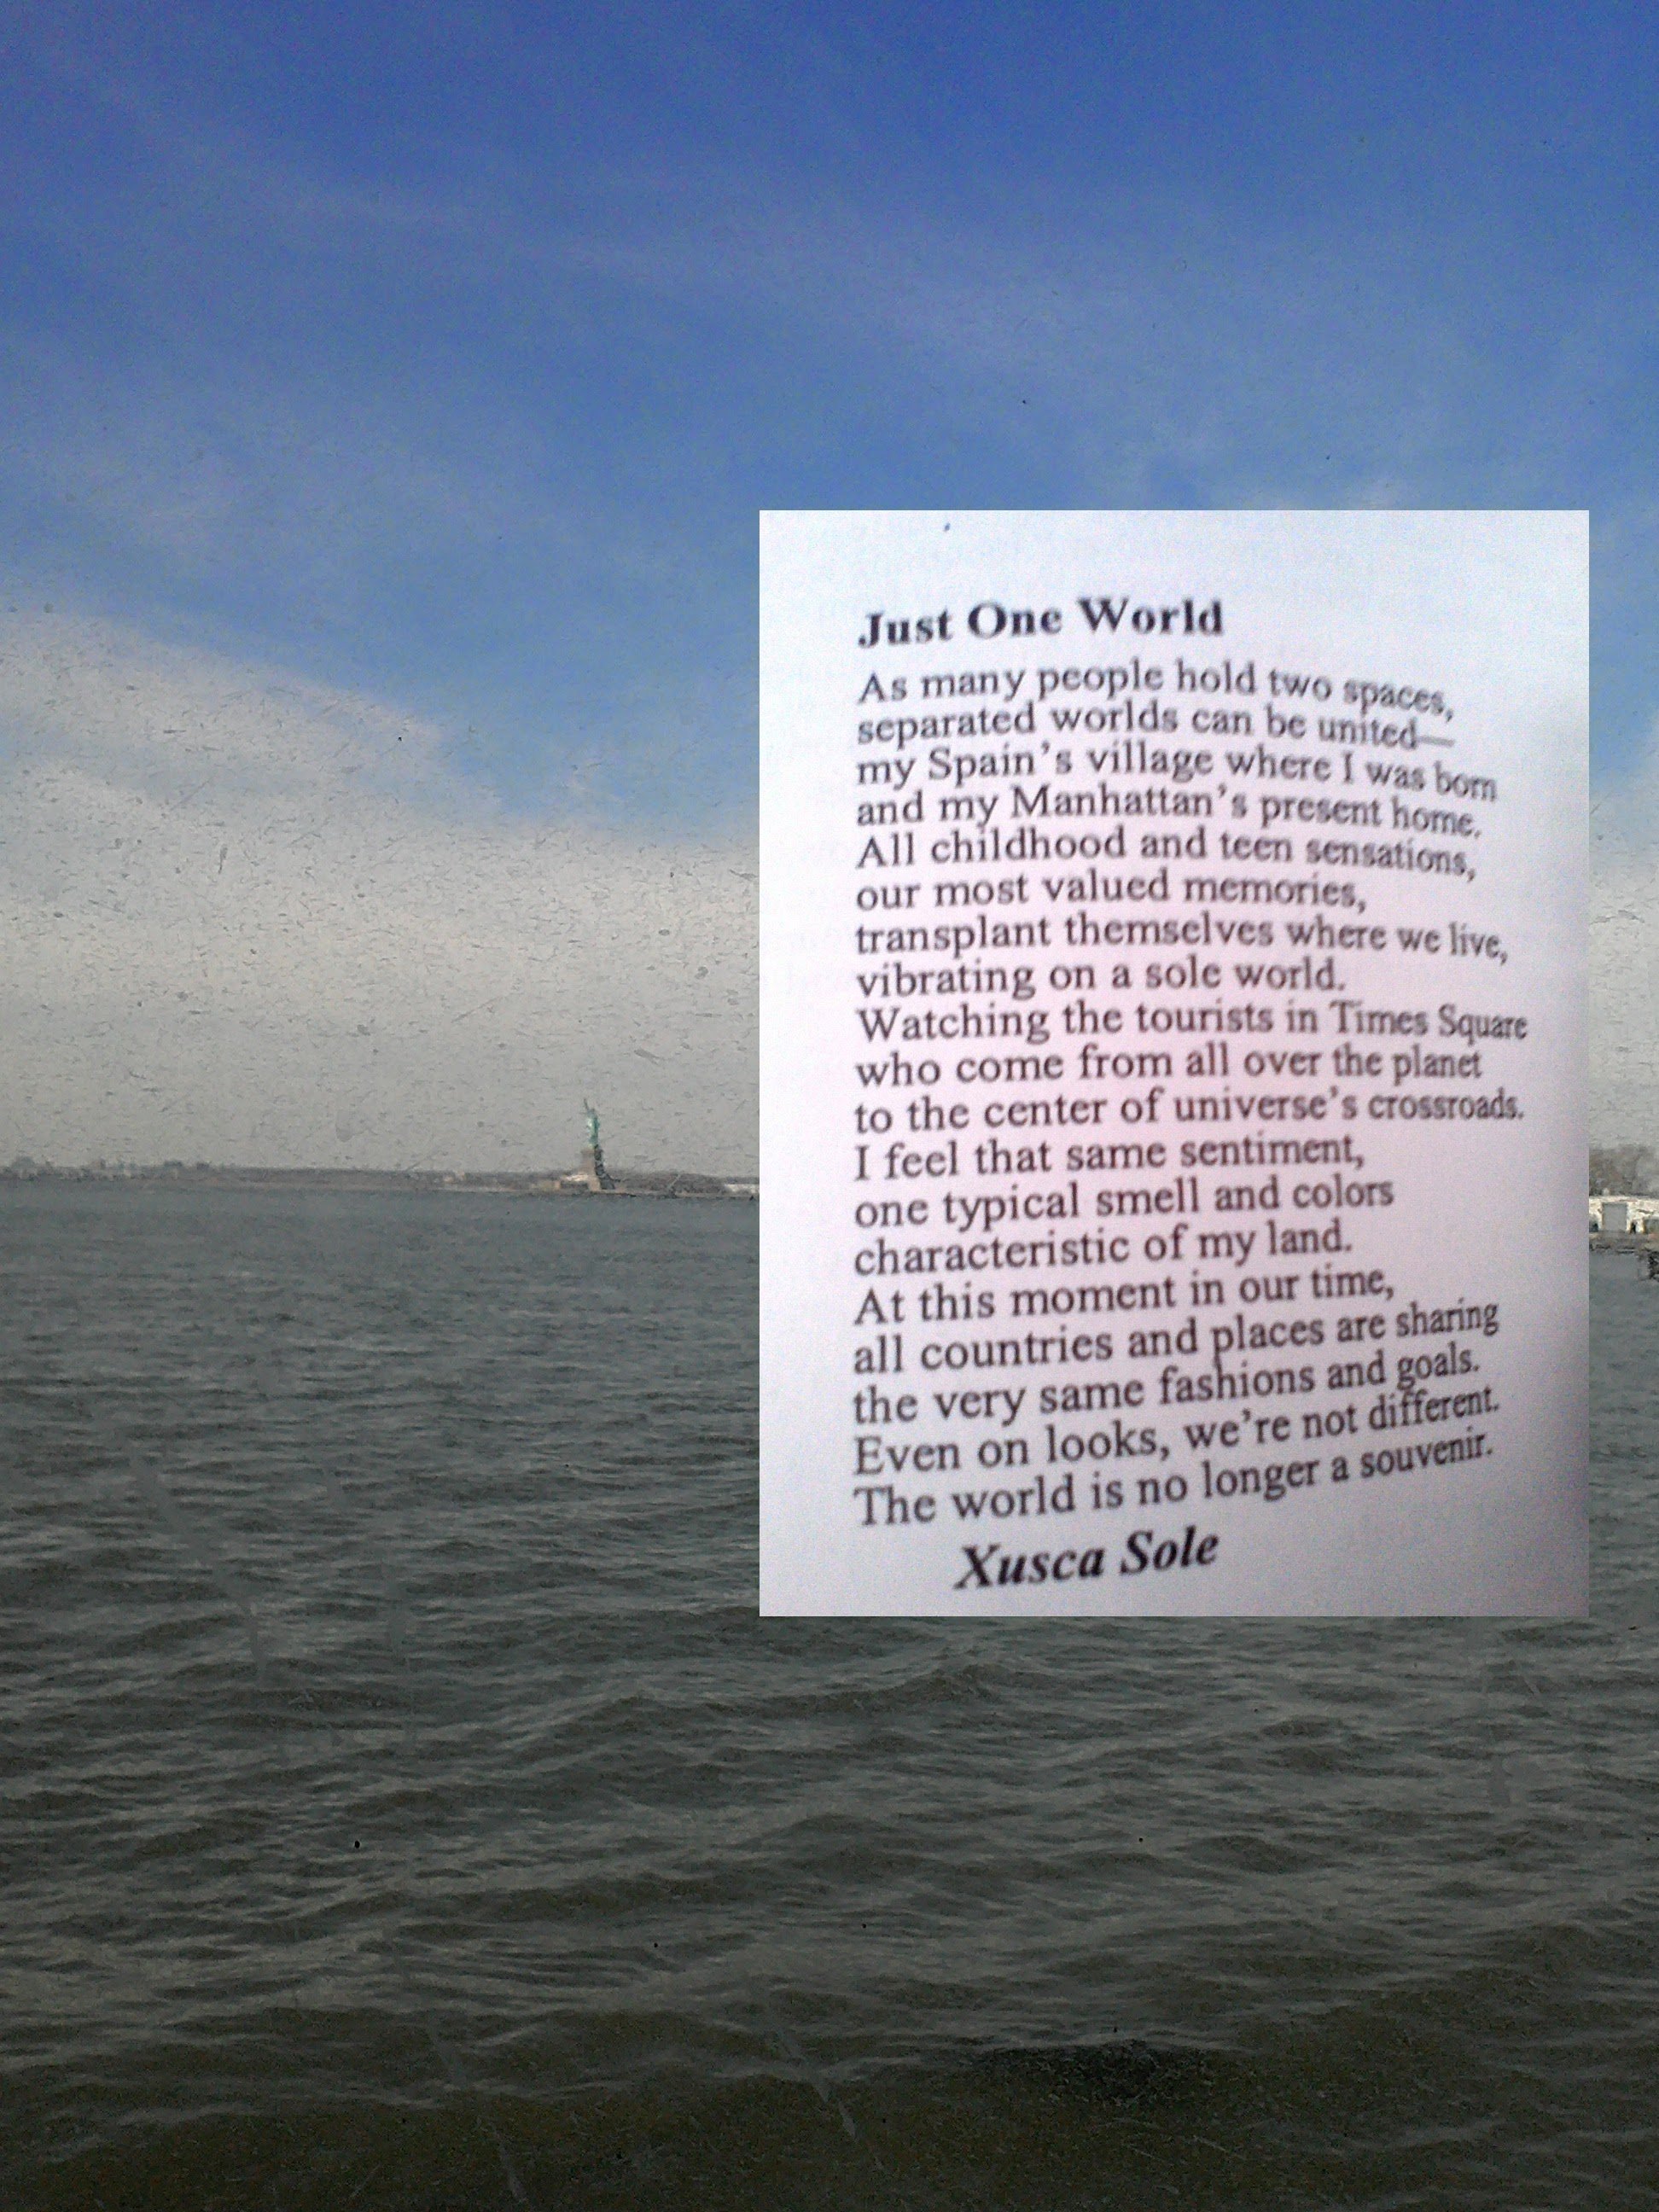 Just One World
As many people hold two spaces,
separated worlds can be united—
my Spain's village where I was born
and my Manhattan's present home.
All childhood and teen sensations,
our most valued memories,
transplant themselves where we live,
vibrating on a sole world.
Watching the tourists in Times Square
who come from all over the planet
to the center of universe's crossroads.
I feel that same sentiment,
one typical smell and colors
characteristic of my land.
At this moment in our time,
all countries and places are sharing
the very same fashions and goals.
Even on looks, we're not different.
The world is no longer a souvenir.
Xusca Sole